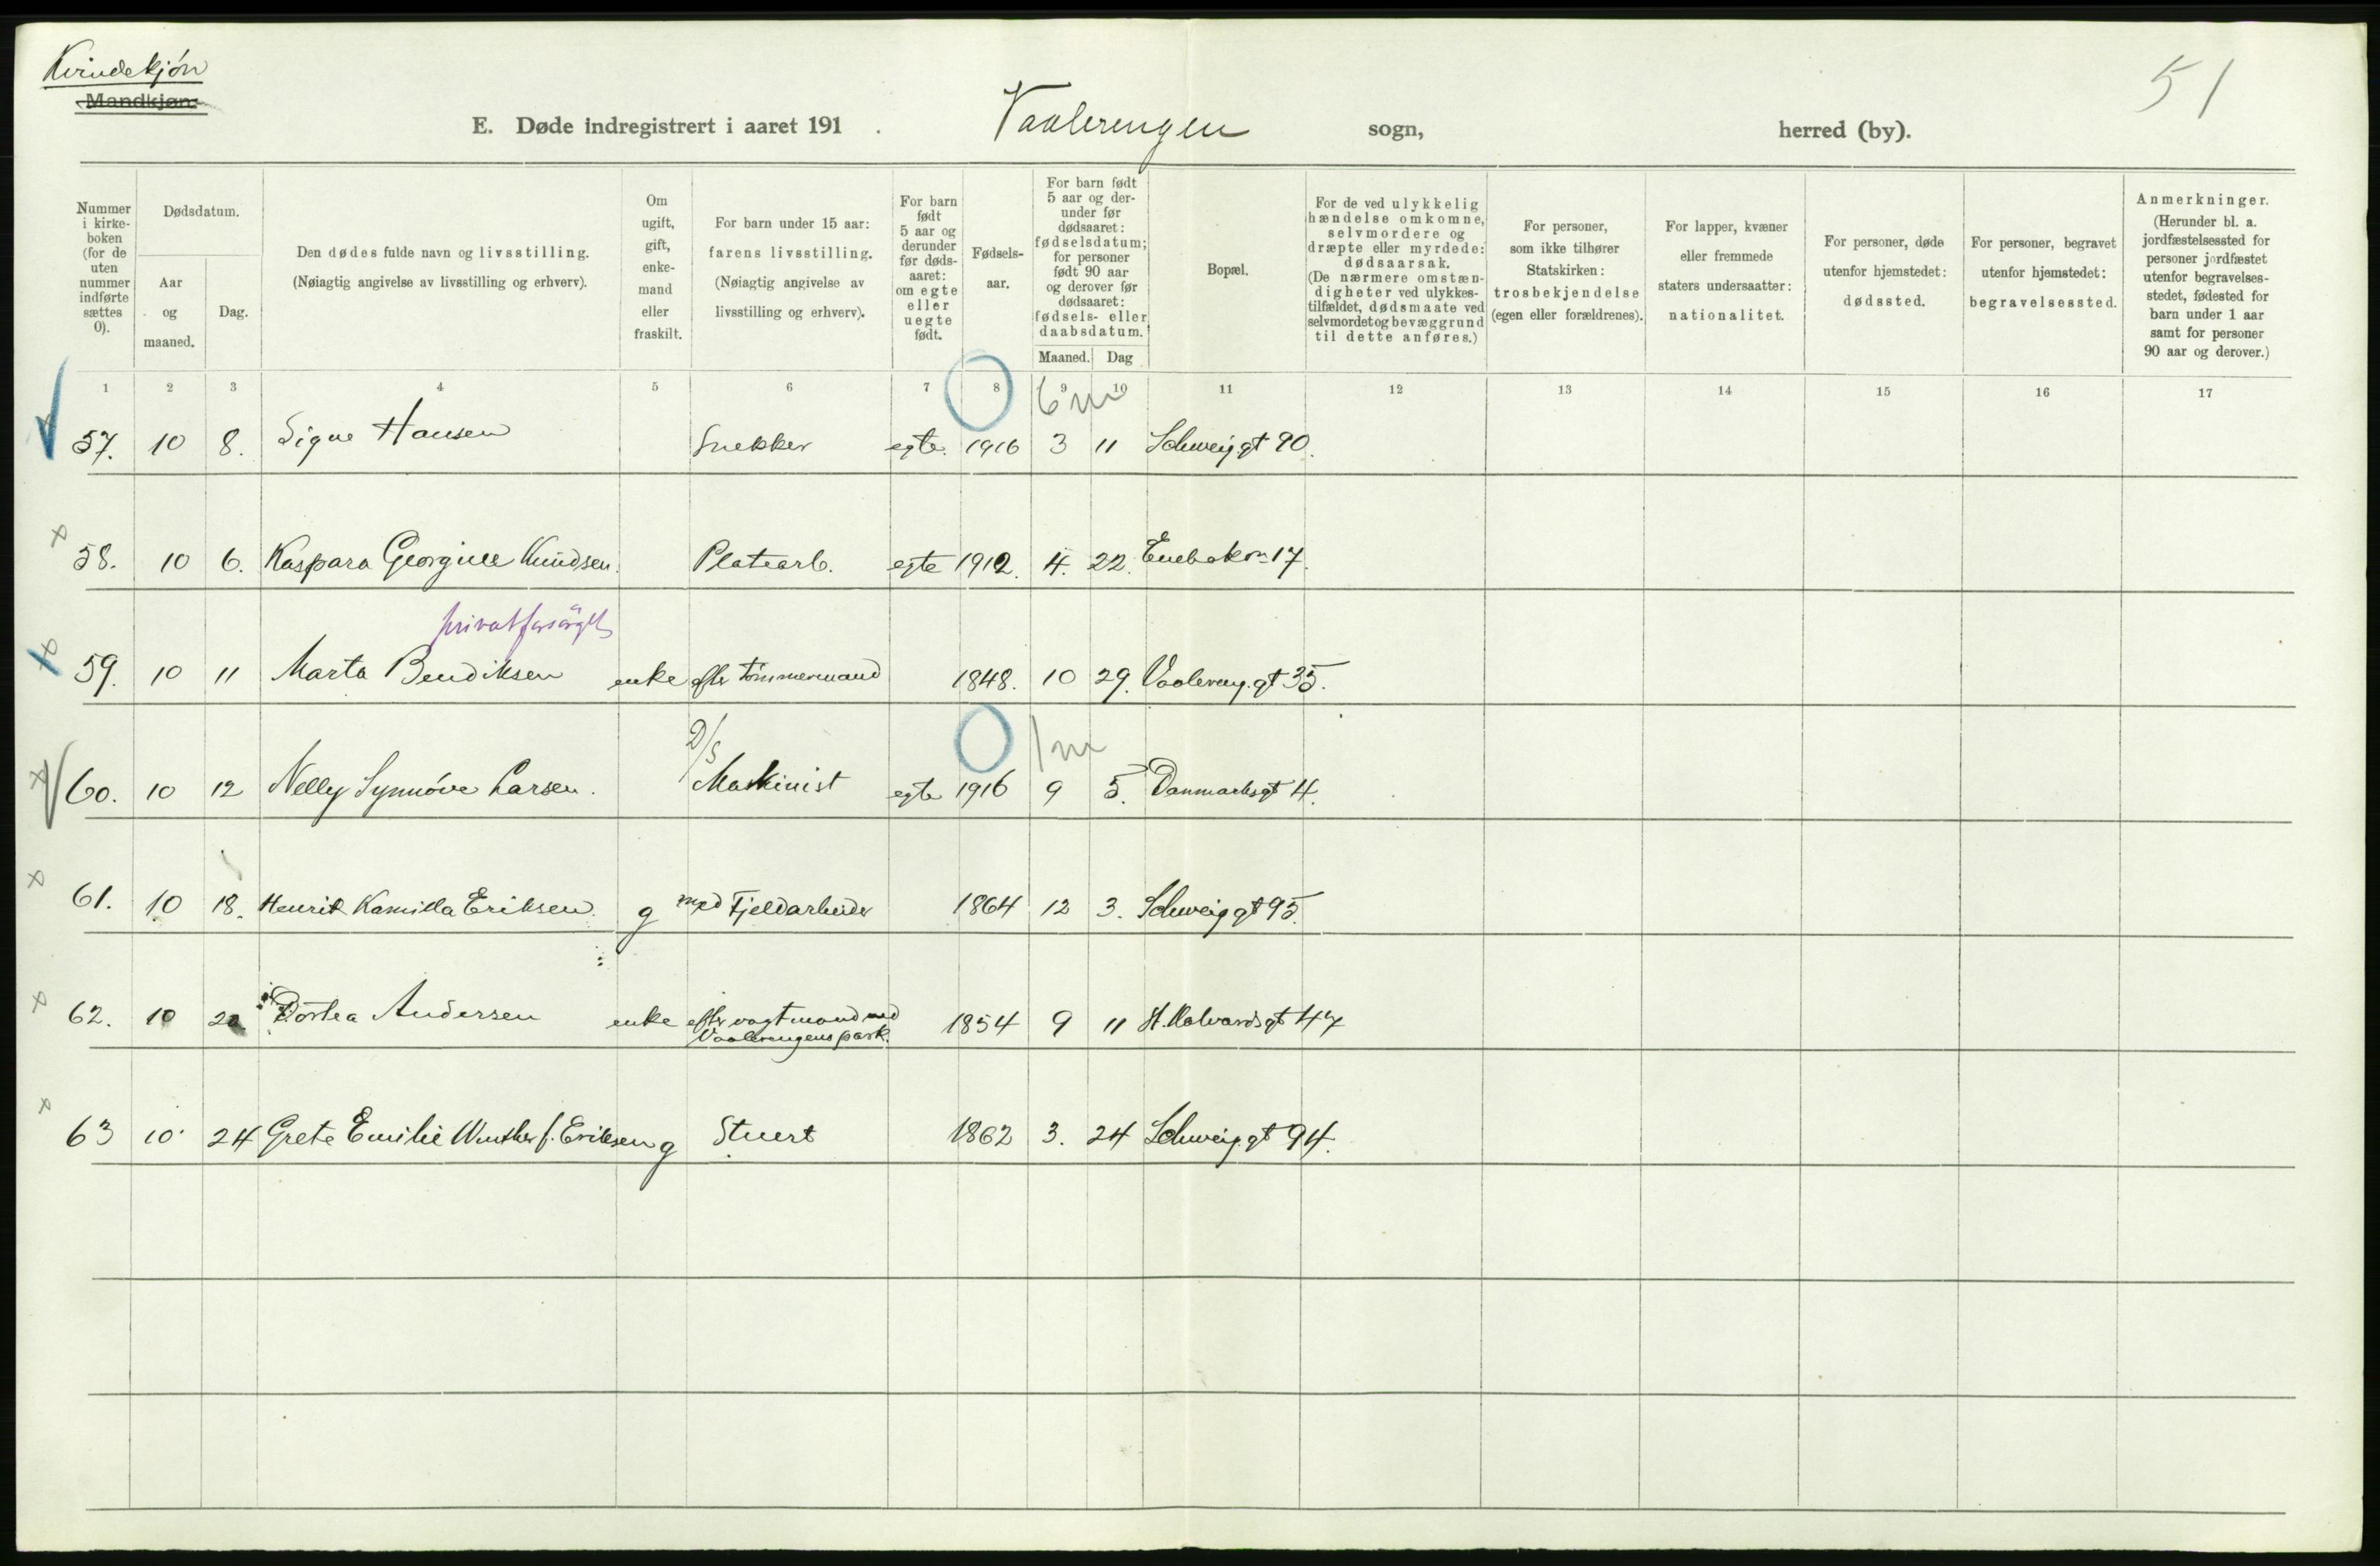 Kvindekjön
Mandkjøn.
51
E. Døde indregistrert i aaret 191 . Vaalerengen sogn, herred (by).
Nummer i kirke-boken (for de uten nummer indførte sættes 0).
Dødsdatum.
Aar og maaned.
Dag.
Den dødes fulde navn og livsstilling.
(Nøiagtig angivelse av livsstilling og erhverv).
Om ugift, gift, enke-mand eller fraskilt.
For barn under 15 aar: farens livsstilling. (Nøiagtig angivelse av livsstilling og erhverv).
For barn født 5 aar og derunder før døds-aaret: om egte eller uegte født.
Fødsels-aar.
For barn født 5 aar og der-under før dødsaaret: fødselsdatum; for personer født 90 aar og derover før dødsaaret: fødsels- eller daabsdatum.
Maaned. Dag
Bopæl.
For de ved ulykkelig hændelse omkomne, selvmordere og dræpte eller myrdede: dødsaarsak. (De nærmere omstæn-digheter ved ulykkes-tilfældet, dødsmaate ved selvmordet og bevæggrund til dette anføres.)
For personer, som ikke tilhører Statskirken: trosbekjendelse (egen eller forældrenes).
For lapper, kvæner eller fremmede staters undersaatter: nationalitet.
For personer, døde utenfor hjemstedet: dødssted.
For personer, begravet utenfor hjemstedet: begravelsessted.
Anmerkninger. (Herunder bl. a. jordfæstelsessted for personer jordfæstet utenfor begravelses-stedet, fødested for barn under 1 aar samt for personer 90 aar og derover.)
1 2 3 4 5 6 7 8 9 10 11 12 13 14 15 16 17
6 m
57. 10 8. Signe Hansen Snekker egte. 1916 3 11 Schweig.gt 90.
58. 10 6. Kaspara Georgine Knudsen. Platearb. egte 1912. 4. 22. Enebakv. 17.
privat forsörget
59. 10 11 Marta Bendiksen enke efter Tömmermand 1848. 10 29. Vaalereng.gt 35.
D/S 1 m
60. 10 12 Nelly Synnöve Larsen. Maskinist egte 1916 9 5. Danmarksgt 4.
61. 10 18. Henrik Kamilla Eriksen. g med Fjeldarbeider 1864 12 3. Schweig gt 95.
62. 10 20 Dortea Andersen enke efter vagtmand ved Vaalerengens park. 1854 9 11 St. Halvardsgt 47
63 10 24 Grete Emilie Winther f. Eriksen g Stuert 1862 3. 24 Schweig.gt 94.